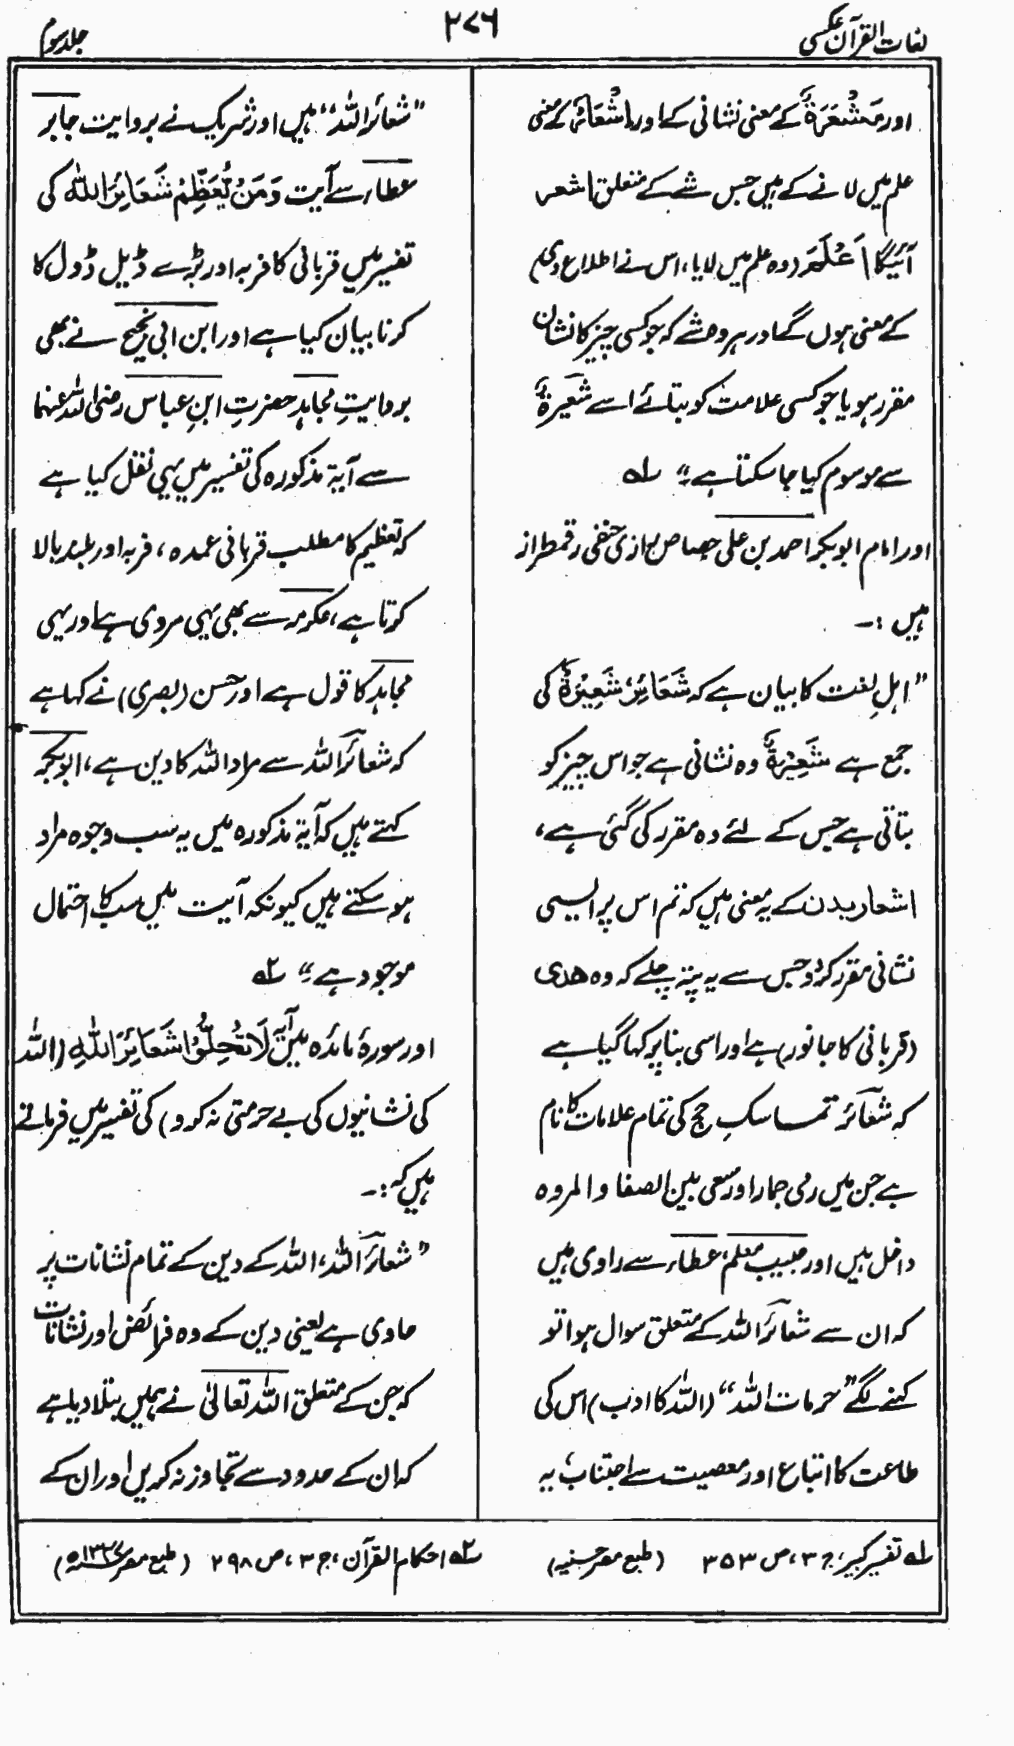 لغات القرآن عکسی
۲۷۶
جلد سوم
اور مَشْعَرَةٌ کے معنی نشانی کے اور اِشْعَارٌ کے معنی
علم میں لانے کے ہیں جس شے کے متعلق اشعر
آئیگا اَعْلَمَ (وہ علم میں لایا، اس نے اطلاع دی)
کے معنی ہوں گے اور ہر وہ شے کہ جو کسی چیز کا نشان
مقرر ہو یا جو کسی علامت کو بتائے اسے شَعِیْرَةٌ
سے موسوم کیا جا سکتا ہے؛“ لہ
اور امام ابوبکر احمد بن علی جصاص رازی حنفی رقمطراز
ہیں :۔
”اہلِ لغت کا بیان ہے کہ شَعَائِرُ، شَعِیْرَةٌ کی
جمع ہے شَعِیْرَةٌ وہ نشانی ہے جو اس چیز کو
بتاتی ہے جس کے لئے وہ مقرر کی گئی ہے،
اشعار بدن کے یہ معنی ہیں کہ تم اس پر ایسی
نشانی مقرر کر دو جس سے یہ پتہ چلے کہ وہ ھدی
(قربانی کا جانور) ہے اور اسی بنا پر کہا گیا ہے
کہ شعائر تمام مناسکِ حج کی تمام علامات کا نام
ہے جن میں رمی جمار اور سعی بین الصفا والمروہ
داخل ہیں اور حبیب معلم، عطاء سے راوی ہیں
کہ ان سے شعائر اللہ کے متعلق سوال ہوا تو
کہنے لگے ”حرمات اللہ“ (اللہ کا ادب) اس کی
طاعت کا اتباع اور معصیت سے اجتناب یہ
”شعائر اللہ“ ہیں اور شریک نے بروایت جابر
عطاء سے آیت وَمَنْ یُّعَظِّمْ شَعَائِرَ اللّٰهِ کی
تفسیر میں قربانی کا فربہ اور بڑے ڈیل ڈول کا
کرنا بیان کیا ہے اور ابن ابی نجیح نے بھی
بروایتِ مجاہد حضرتِ ابنِ عباس رضی اللہ عنہما
سے آیۃ مذکورہ کی تفسیر میں یہی نقل کیا ہے
کہ تعظیم کا مطلب قربانی عمدہ، فربہ اور بلند بالا
کرنا ہے، عکرمہ سے بھی یہی مروی ہے اور یہی
مجاہد کا قول ہے اور حسن (بصری) نے کہا ہے
کہ شعائر اللہ سے مراد اللہ کا دین ہے، ابوبکر
کہتے ہیں کہ آیۃ مذکورہ میں یہ سب وجوہ مراد
ہو سکتے ہیں کیونکہ آیت میں سب کا احتمال
موجود ہے؛“ ۲ہ
اور سورۂ مائدہ میں آیہ لَا تُحِلُّوْا شَعَائِرَ اللّٰهِ (اللہ
کی نشانیوں کی بے حرمتی نہ کرو) کی تفسیر میں فرماتے
ہیں کہ :۔
”شعائر اللہ، اللہ کے دین کے تمام نشانات پر
حاوی ہے یعنی دین کے وہ فرائض اور نشانات
کہ جن کے متعلق اللہ تعالیٰ نے ہمیں بتلا دیا ہے
کہ ان کے حدود سے تجاوز نہ کریں اور ان کے
لہ تفسیر کبیر، ج ۳، ص ۳۵۳ (طبع مصر حسنیہ)
۲ہ احکام القرآن، ج ۳، ص ۲۹۸ (طبع مصر ۱۳۴۷ھ)